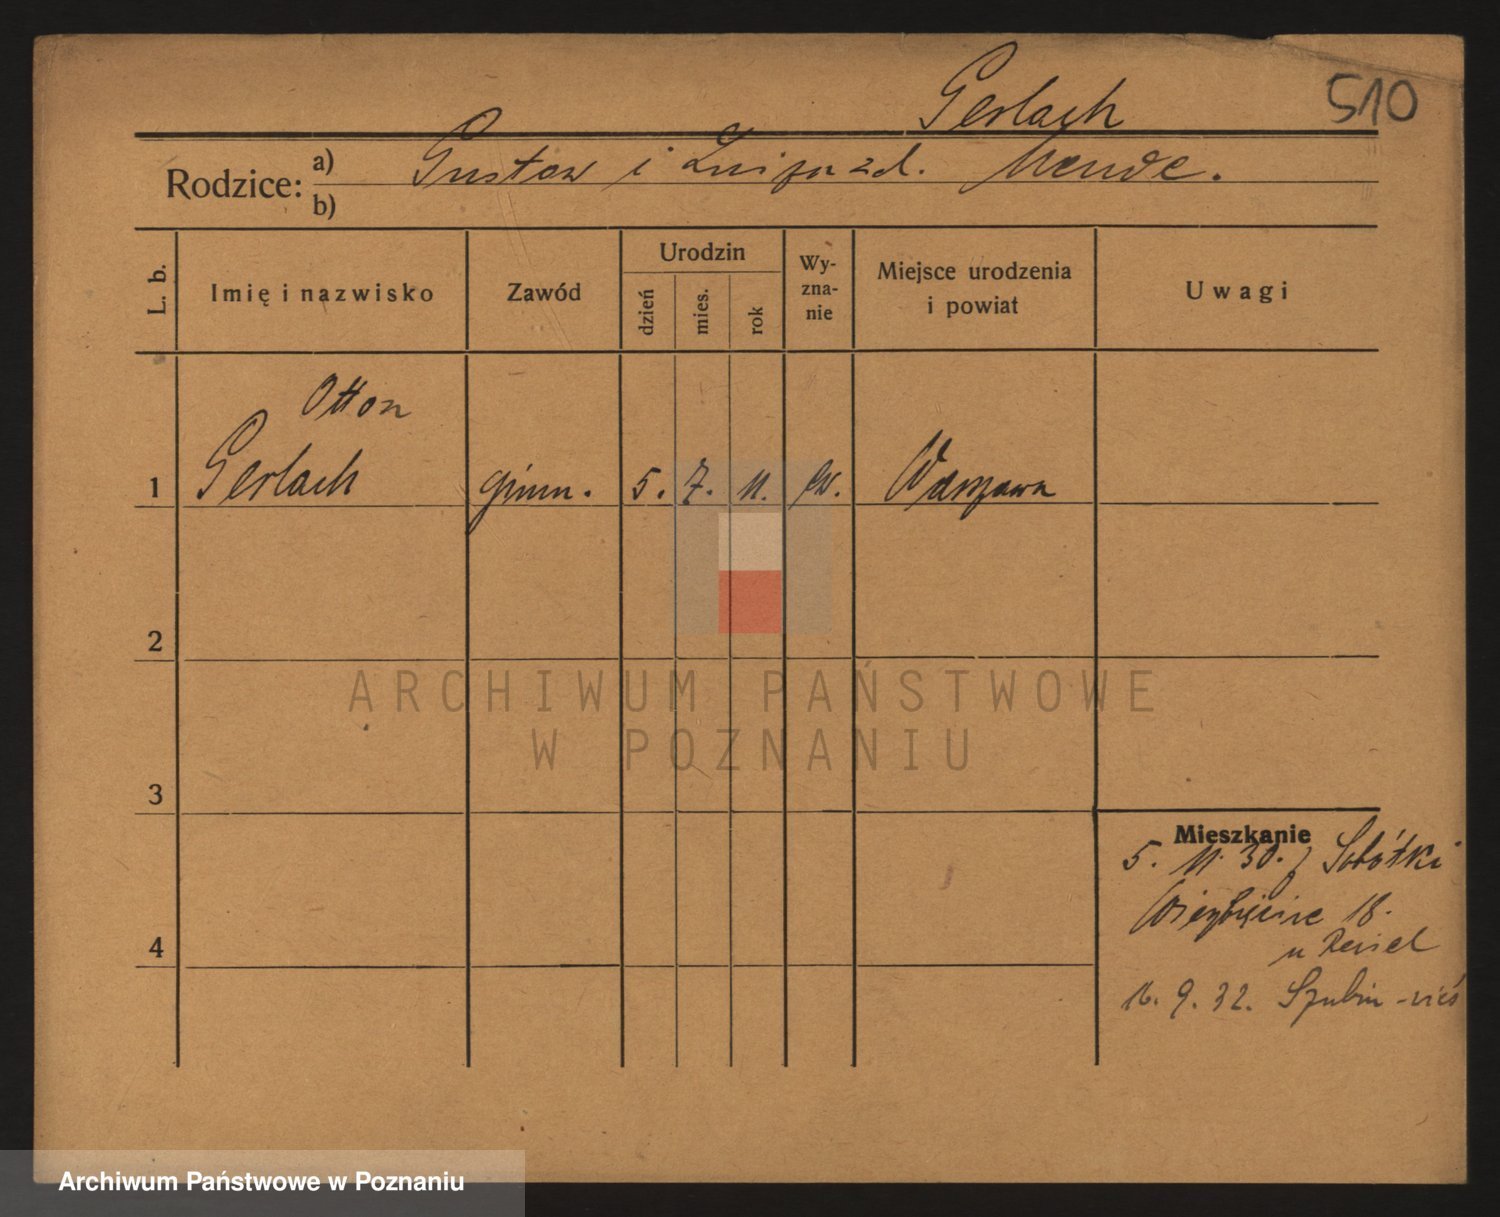 Gerlach
510
Rodzice:
a) Gustaw i Luiza zd. Mende.
b)
L. b.
Imię i nazwisko
Zawód
Urodzin
dzień
mies.
rok
Wy-
zna-
nie
Miejsce urodzenia
i powiat
Uwagi
Otton
1 Gerlach gimn. 5. 7. 11. ew. Warszawa
2
ARCHIWUM PAŃSTWOWE
W POZNANIU
3
Mieszkanie
5. 11. 30. z Sobótki
18.
u
4
16. 9. 32. Szubin-wieś
Archiwum Państwowe w Poznaniu